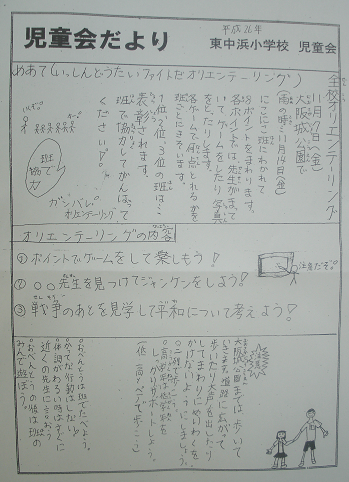 児童会だより
平成26年
東中浜小学校 児童会
めあて(いっしんどうたい ファイトだ オリエンテーリング)
全校オリエンテーリング
11月7日(金)
大阪城公園で
(雨の時…11月14日(金)
にこにこ班にわかれて
ポイントをまわります。
各ポイントでは、先生がまって
いて、ゲームをしたり写真
をとったりします。
各ゲームで何点とれるかを
班ごとにきそいます。
1位、2位、3位の班は…
表彰されます。
班で協力してがんばって
ください。
班で
協力
ガンバレ
オリエンテーリング
オリエンテーリングの内容
①ポイントでゲームをして楽しもう!
②○○先生を見つけてジャンケンをしよう!
③戦争のあとを見学して平和について考えよう!
注意だぞ。
大阪城公園までは、歩いて
いきます。道路に広がって
歩いたり大声を出したり
してまわりにめいわくを
かけないようにしましょう。
○二列で歩こう。
しっかりサポートしよう。
○おべんとうは班でたべよう。
○かってな行動はしない。
○体調がわるい時はすぐに
近くの先生に言おう。
○おべんとうの後は班の
みんなで遊ぼう。